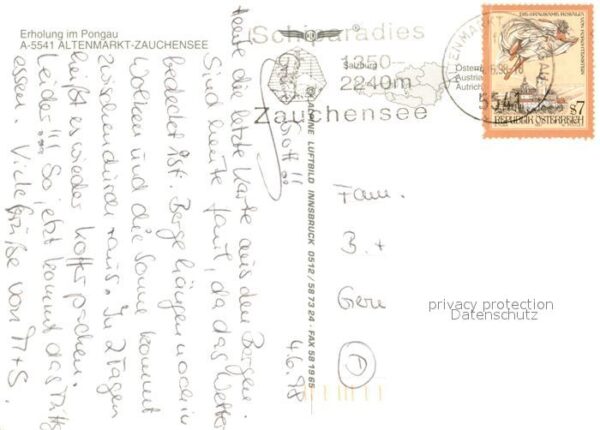 Erholung im Pongau
A-5541 ALTENMARKT-ZAUCHENSEE
Schiparadies
1350-
2240m
Zauchensee
Salzburg
ALTENMARKT
5541
DIE GRAUSAME ROSALIA
VON FORCHTENSTEIN
S7
REPUBLIK ÖSTERREICH
ALPINE LUFTBILD INNSBRUCK 0512/58 73 24 · FAX 58 19 65
4.6.98
Grüß
Gott!!
Heute die letzte Karte aus den Bergen.
Sind heute faul, da das Wetter
bedeckt ist. Berge hängen noch in
Wolken und die Sonne kommt
zwischendurch raus. In 2 Tagen
heißt es wieder Koffer packen.
Leider!!! So jetzt kommt das
essen. Viele Grüße von M+S.
Fam.
B. +
Gere
D
privacy protection
Datenschutz